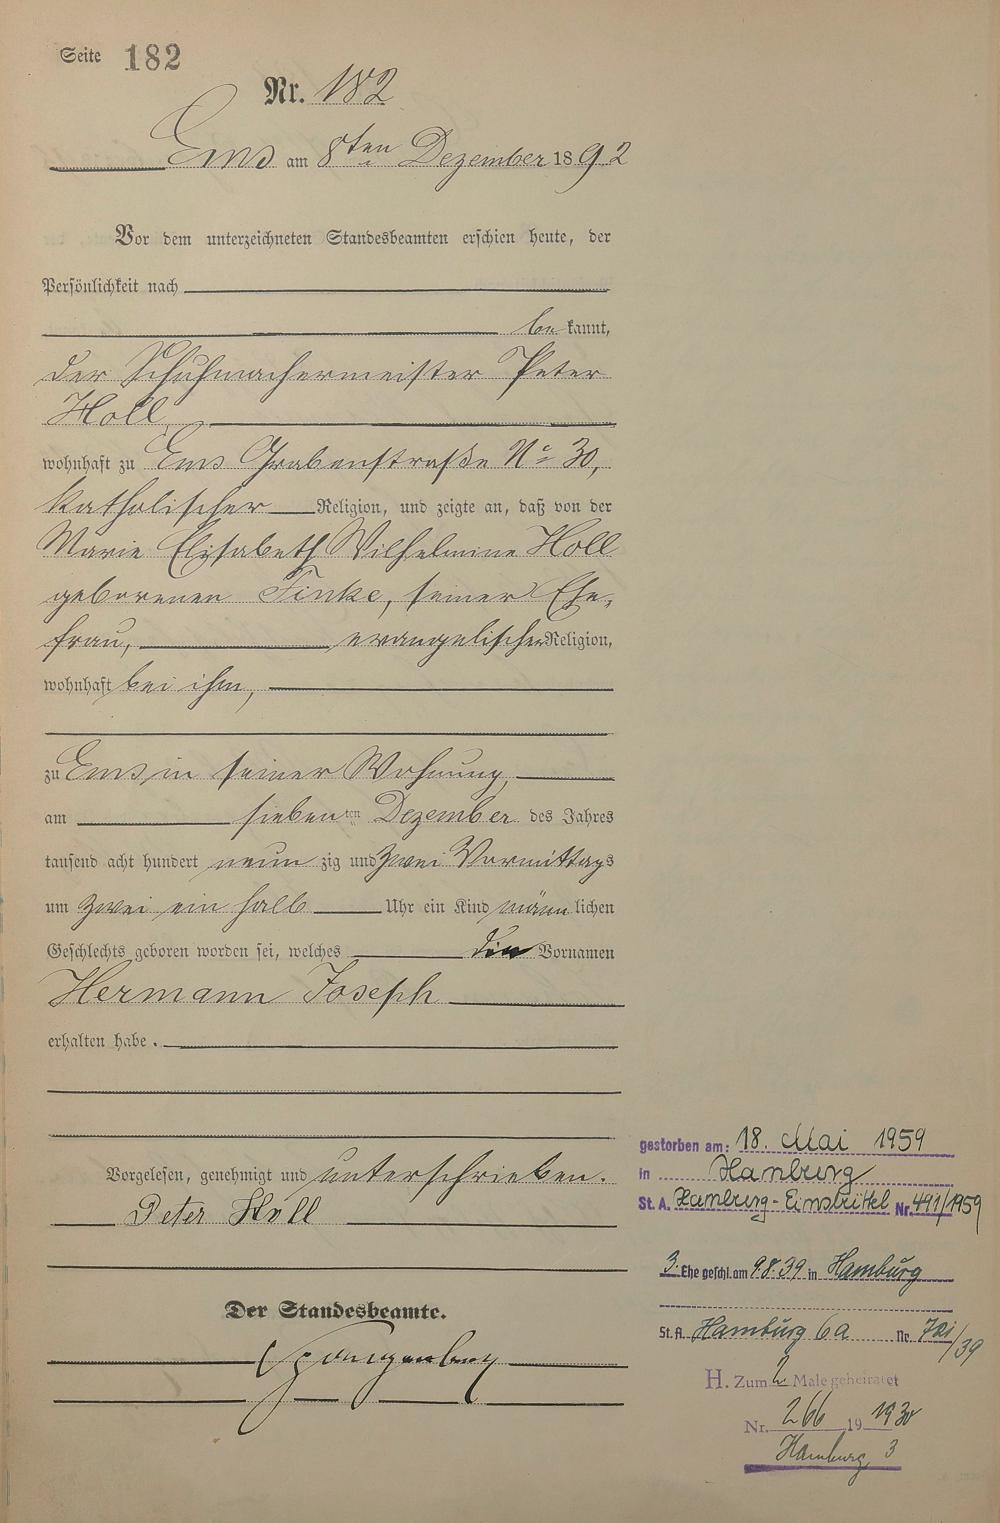 Seite 182
Nr. 182
Ems am 8ten Dezember 1892
Vor dem unterzeichneten Standesbeamten erschien heute, der
Persönlichkeit nach
bekannt,
der Schuhmachermeister Peter
Holl,
wohnhaft zu Ems Grabenstraße No 30,
katholischer Religion, und zeigte an, daß von der
Marie Elisabeth Wilhelmine Holl
geborenen Finke, seiner Ehe-
frau, evangelischer Religion,
wohnhaft bei ihm,
zu Ems in seiner Wohnung,
am siebenten Dezember des Jahres
tausend acht hundert neunzig und zwei Vormittags
um zwei ein halb Uhr ein Kind männlichen
Geschlechts geboren worden sei, welches die Vornamen
Hermann Joseph
erhalten habe.
Vorgelesen, genehmigt und unterschrieben.
Peter Holl
Der Standesbeamte.
gestorben am: 18. Mai 1959
in Hamburg
St. A. Hamburg-Eimsbüttel Nr. 491/1959
3. Ehe geschl. am 9.8.39 in Hamburg
St. A. Hamburg 6a Nr. /39
H. Zum 2 Male geheiratet
Nr. 266 19 1930
Hamburg 3